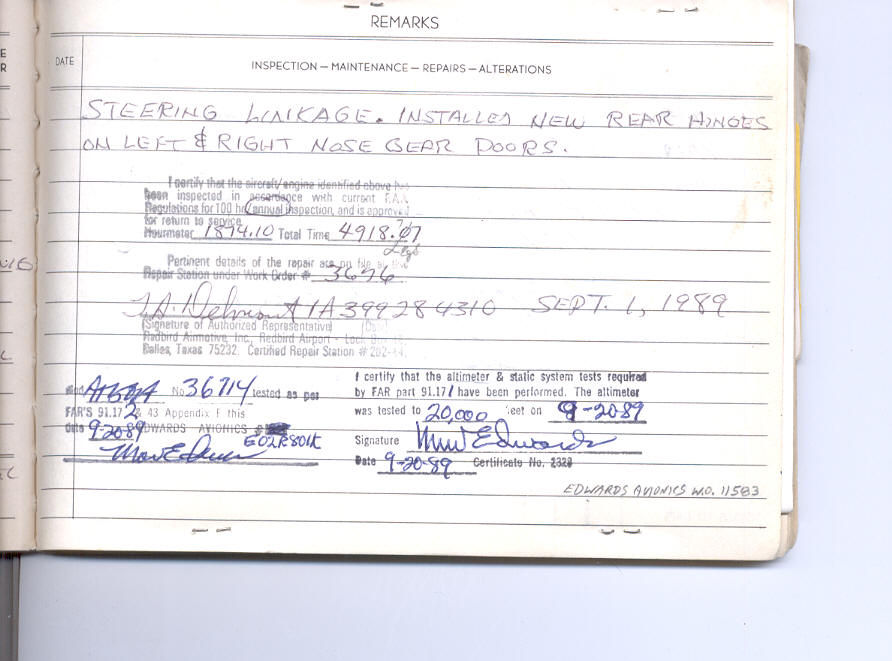 REMARKS
DATE
INSPECTION — MAINTENANCE — REPAIRS — ALTERATIONS
STEERING LINKAGE. INSTALLED NEW REAR HINGES
ON LEFT & RIGHT NOSE GEAR DOORS.
I certify that the aircraft/engine identified above has
been inspected in accordance with current F.A.
Regulations for 100 hr/annual inspection, and is approved
for return to service
Hourmeter 1874.10 Total Time 4918.07
Pertinent details of the repair are on file at this
Repair Station under Work Order # 3676
IA399284310 SEPT. 1, 1989
(Signature of Authorized Representative) (Date)
Redbird Airmotive, Inc., Redbird Airport -
Dallas, Texas 75232. Certified Repair Station #202-44
No 36714 tested as per
FAR'S 91.172 & 43 Appendix F this
date 9-20-89 EDWARDS AVIONICS #
E02R801K
I certify that the altimeter & static system tests required
by FAR part 91.171 have been performed. The altimeter
was tested to 20,000 feet on 9-20-89
Signature Edwards
Date 9-20-89 Certificate No. 2328
EDWARDS AVIONICS W.O. 11583